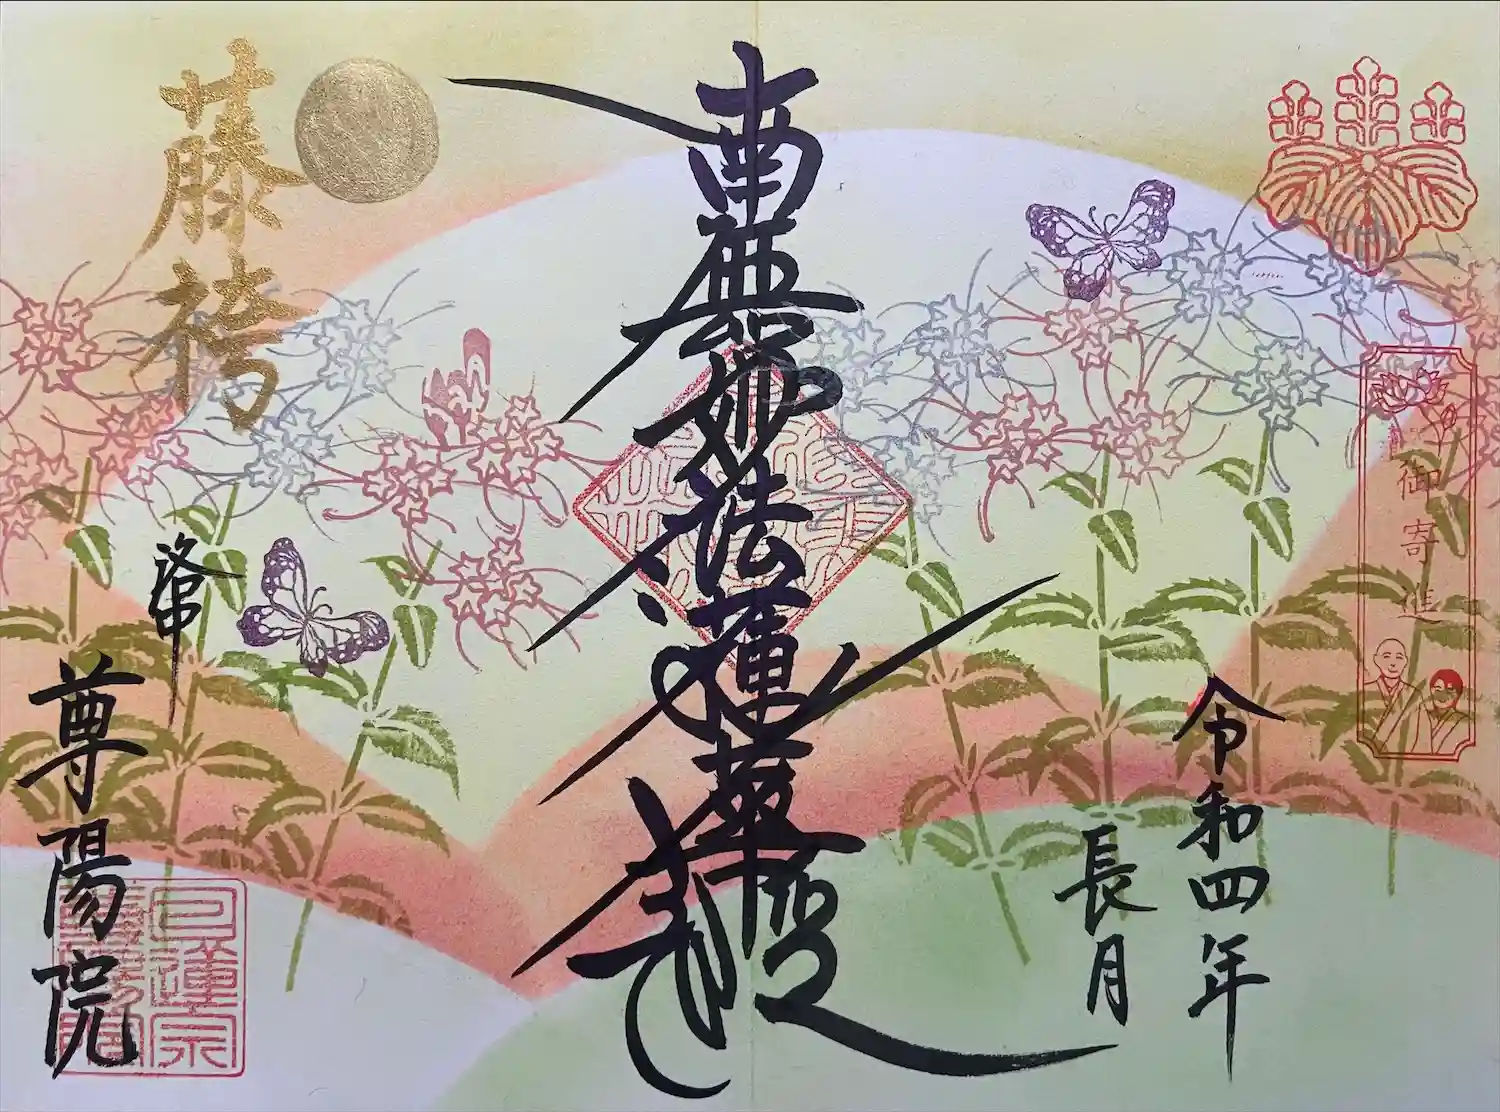 御寄進
令和四年
長月
南無妙法蓮華経
藤袴
洛中
尊陽院
日蓮宗